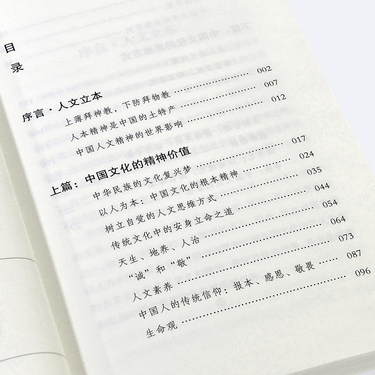 目录
序言·人文立本
上薄拜神教、下防拜物教 002
人本精神是中国的土特产 007
中国人文精神的世界影响 012
上篇：中国文化的精神价值
中华民族的文化复兴梦 017
以人为本：中国文化的根本精神 024
树立自觉的人文思维方式 035
传统文化中的安身立命之道 044
天生、地养、人治 054
“诚”和“敬” 064
人文素养 073
中国人的传统信仰：报本、感恩、敬畏 087
生命观 096